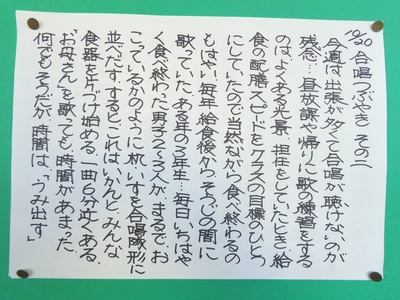 10/20 合唱つぶやき その二
今週は出張が多くて合唱が聴けないのが
残念…昼放課や帰りに歌の練習をする
のはよくある光景 担任をしていたとき 給
食の配膳スピードをクラスの目標のひとつ
にしていたので当然ながら食べ終わるの
もはやい。毎年 給食後から そうじの間に
歌っていた。ある年の3年生…毎日いちはや
く食べ終わった男子2〜3人が まるで、お
こっているかのように 机、いすを合唱隊形に
並べだす。すると、これはいかんと、みんな
食器を片づけ始める。一曲6分近くある、
お母さん を歌っても、時間があまった。
何でもそうだが、時間は、「うみ出す」